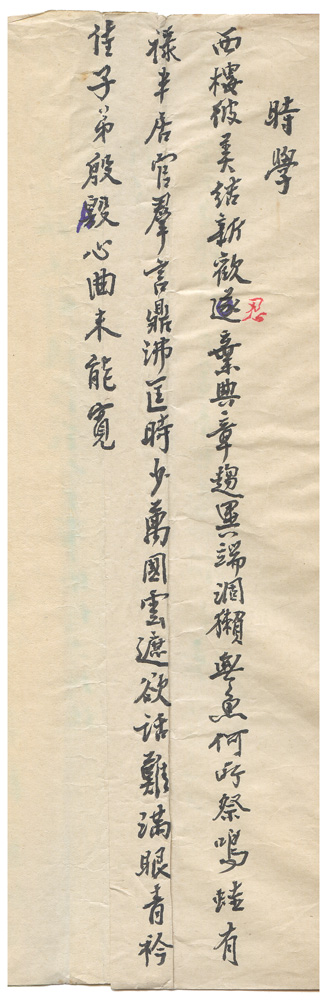 時學
西樓彼美結新歡遂棄典章趨異端涸獺無魚何所祭鳴蛙有
忍
祿半居官羣言鼎沸匡時少萬國雲遮欲話難滿眼青衿
佳子弟殷殷心曲未能寬